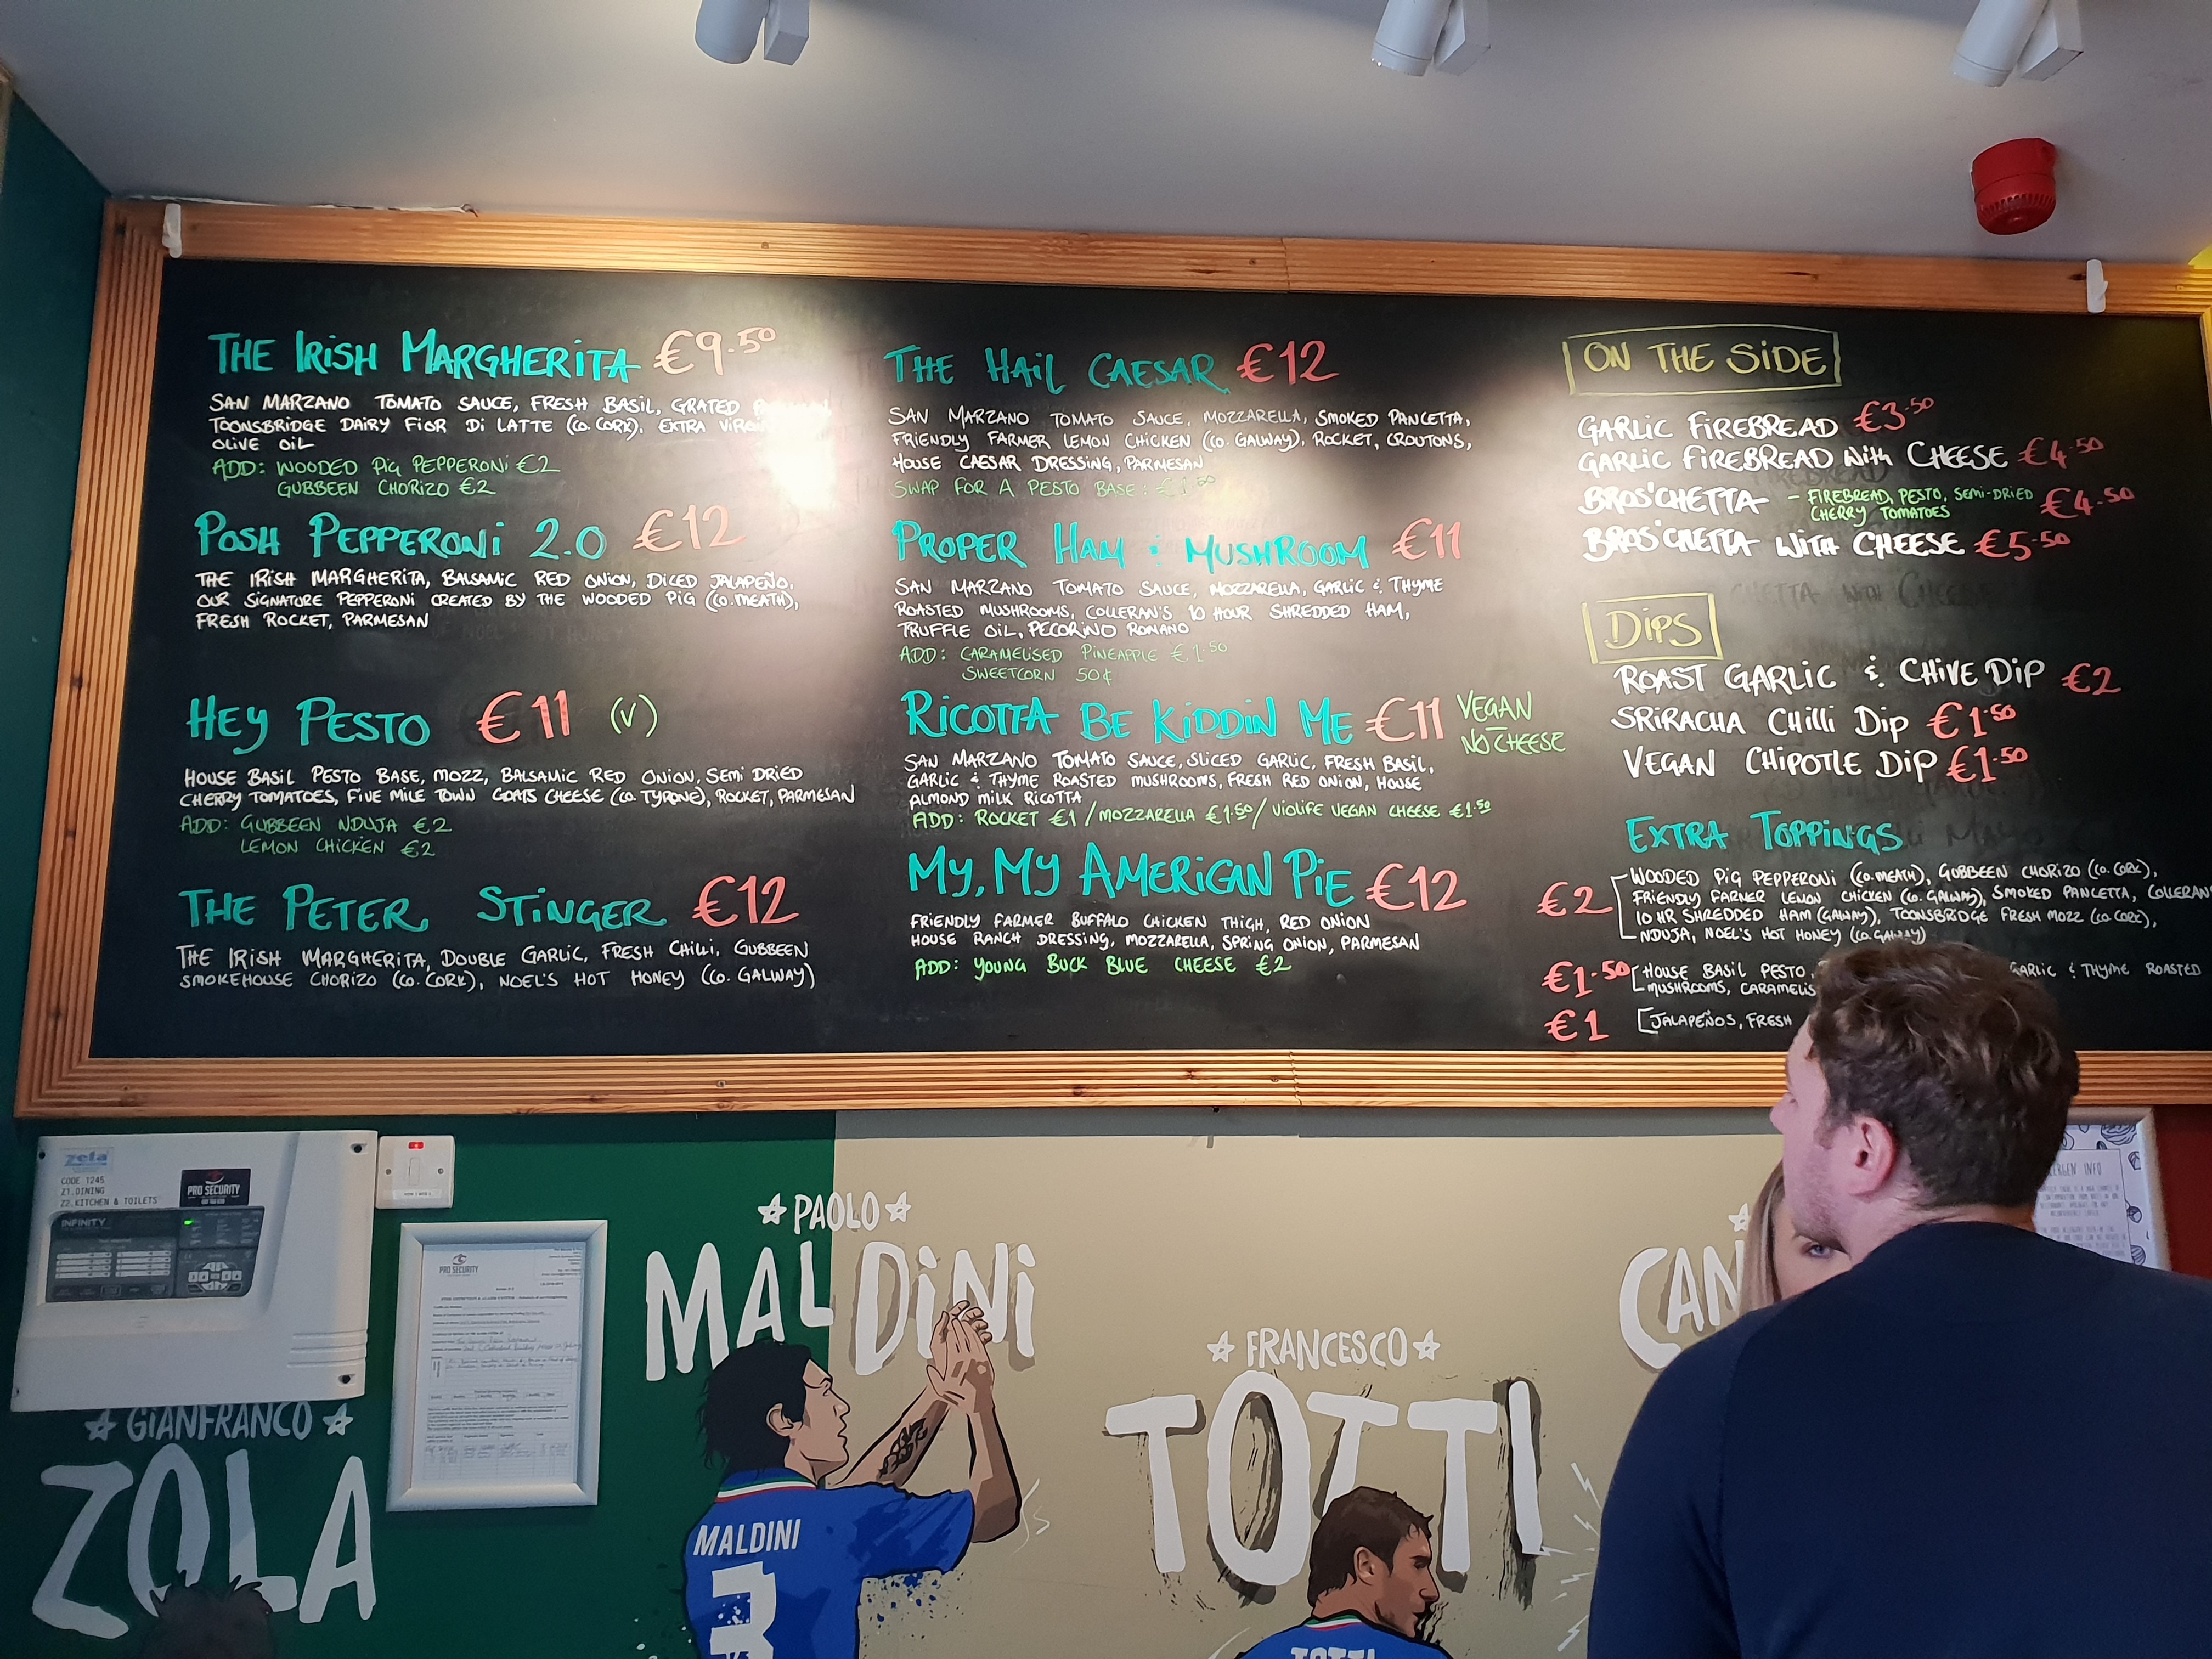 THE IRISH MARGHERITA €9.50
SAN MARZANO TOMATO SAUCE, FRESH BASIL, GRATED
TOONSBRIDGE DAIRY FIOR DI LATTE (CO. CORK), EXTRA VIRGIN
OLIVE OIL
ADD: WOODED PIG PEPPERONI €2
GUBBEEN CHORIZO €2
POSH PEPPERONI 2.0 €12
THE IRISH MARGHERITA, BALSAMIC RED ONION, DICED JALAPEÑO,
OUR SIGNATURE PEPPERONI CREATED BY THE WOODED PIG (CO. MEATH),
FRESH ROCKET, PARMESAN
HEY PESTO €11 (V)
HOUSE BASIL PESTO BASE, MOZZ, BALSAMIC RED ONION, SEMI DRIED
CHERRY TOMATOES, FIVE MILE TOWN GOATS CHEESE (CO. TYRONE), ROCKET, PARMESAN
ADD: GUBBEEN NDUJA €2
LEMON CHICKEN €2
THE PETER STINGER €12
THE IRISH MARGHERITA, DOUBLE GARLIC, FRESH CHILLI, GUBBEEN
SMOKEHOUSE CHORIZO (CO. CORK), NOEL'S HOT HONEY (CO. GALWAY)
THE HAIL CAESAR €12
SAN MARZANO TOMATO SAUCE, MOZZARELLA, SMOKED PANCETTA,
FRIENDLY FARMER LEMON CHICKEN (CO. GALWAY), ROCKET, CROUTONS,
HOUSE CAESAR DRESSING, PARMESAN
SWAP FOR A PESTO BASE: €1.50
PROPER HAM & MUSHROOM €11
SAN MARZANO TOMATO SAUCE, MOZZARELLA, GARLIC & THYME
ROASTED MUSHROOMS, COLLERAN'S 10 HOUR SHREDDED HAM,
TRUFFLE OIL, PECORINO ROMANO
ADD: CARAMELISED PINEAPPLE €1.50
SWEETCORN 50¢
RICOTTA BE KIDDIN ME €11 VEGAN
NO CHEESE
SAN MARZANO TOMATO SAUCE, SLICED GARLIC, FRESH BASIL,
GARLIC & THYME ROASTED MUSHROOMS, FRESH RED ONION, HOUSE
ALMOND MILK RICOTTA
ADD: ROCKET €1 / MOZZARELLA €1.50 / VIOLIFE VEGAN CHEESE €1.50
MY, MY AMERICAN PIE €12
FRIENDLY FARMER BUFFALO CHICKEN THIGH, RED ONION
HOUSE RANCH DRESSING, MOZZARELLA, SPRING ONION, PARMESAN
ADD: YOUNG BUCK BLUE CHEESE €2
ON THE SIDE
GARLIC FIREBREAD €3.50
GARLIC FIREBREAD WITH CHEESE €4.50
BROS'CHETTA - FIREBREAD, PESTO, SEMI-DRIED €4.50
CHERRY TOMATOES
BROS'CHETTA WITH CHEESE €5.50
DIPS
ROAST GARLIC & CHIVE DIP €2
SRIRACHA CHILLI DIP €1.50
VEGAN CHIPOTLE DIP €1.50
EXTRA TOPPINGS
€2 WOODED PIG PEPPERONI (CO. MEATH), GUBBEEN CHORIZO (CO. CORK),
FRIENDLY FARMER LEMON CHICKEN (CO. GALWAY), SMOKED PANCETTA, COLLERAN
10 HR SHREDDED HAM (GALWAY), TOONSBRIDGE FRESH MOZZ (CO. CORK),
NDUJA, NOEL'S HOT HONEY (CO. GALWAY)
€1.50 HOUSE BASIL PESTO, GARLIC & THYME ROASTED
MUSHROOMS, CARAMELIS
€1 JALAPEÑOS, FRESH
zeta
CODE 1245
Z1.DINING
Z2.KITCHEN & TOILETS
PRO SECURITY
INFINITY
PRO SECURITY
PAOLO
MALDINI
MALDINI
3
FRANCESCO
TOTTI
TOTTI
CAN
GIANFRANCO
ZOLA
ERGEN INFO